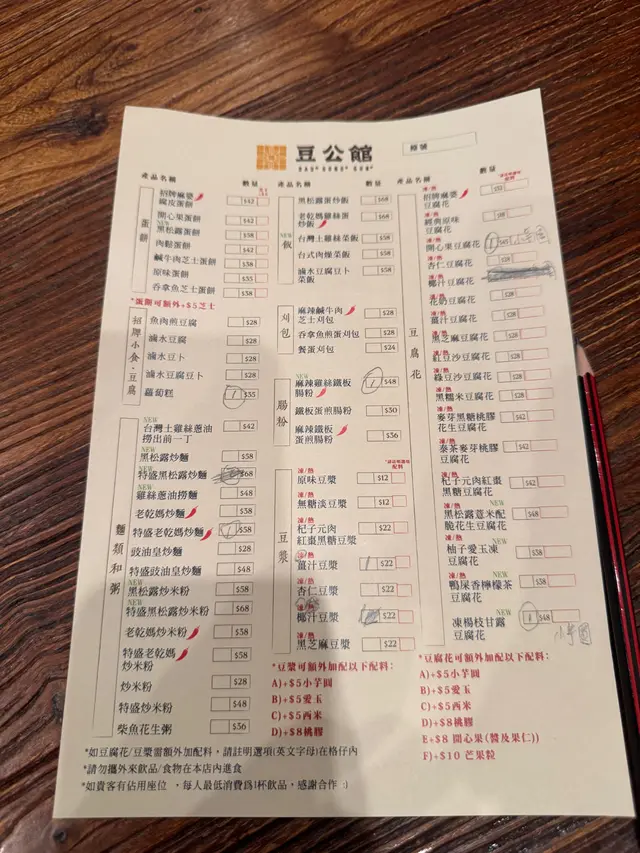 豆公館
DAU² GUNG¹ GUN²
檯號
產品名稱 數量
蛋餅
招牌麻婆
腐皮蛋餅 $42
開心果蛋餅 $42
NEW
黑松露蛋餅 $58
肉鬆蛋餅 $42
鹹牛肉芝士蛋餅 $38
原味蛋餅 $35
吞拿魚芝士蛋餅 $38
*蛋餅可額外+$5芝士
招牌小食·豆腐
魚肉煎豆腐 $28
滷水豆腐 $28
滷水豆卜 $28
滷水豆腐豆卜 $28
蘿蔔糕 1 $35
麵類和粥
NEW
台灣土雞絲蔥油
撈出前一丁 $42
NEW
黑松露炒麵 $58
NEW
特盛黑松露炒麵 $68
NEW
雞絲蔥油撈麵 $48
老乾媽炒麵 $38
特盛老乾媽炒麵 1 $58
豉油皇炒麵 $28
特盛豉油皇炒麵 $48
NEW
黑松露炒米粉 $58
NEW
特盛黑松露炒米粉 $68
老乾媽炒米粉 $38
特盛老乾媽
炒米粉 $58
炒米粉 $28
特盛炒米粉 $48
柴魚花生粥 $36
產品名稱 數量
NEW
飯
黑松露蛋炒飯 $68
老乾媽雞絲蛋
炒飯 $68
台灣土雞絲菜飯 $58
台式肉燥菜飯 $58
滷水豆腐豆卜
菜飯 $58
刈包
麻辣鹹牛肉
芝士刈包 $28
吞拿魚煎蛋刈包 $28
餐蛋刈包 $24
腸粉
NEW
麻辣雞絲鐵板
腸粉 1 $48
鐵板蛋煎腸粉 $30
麻辣鐵板
蛋煎腸粉 $36
豆漿
凍/熱
原味豆漿 $12
凍/熱
無糖淡豆漿 $12
凍/熱
杞子元肉
紅棗黑糖豆漿 $22
凍/熱
薑汁豆漿 1 $22
凍/熱
杏仁豆漿 $22
椰汁豆漿 $22
凍/熱
黑芝麻豆漿 $22
*豆漿可額外加配以下配料:
A)+$5小芋圓
B)+$5愛玉
C)+$5西米
D)+$8桃膠
產品名稱 數量
豆腐花
凍/熱
招牌麻婆
豆腐花
凍/熱
經典原味
豆腐花
凍/熱
開心果豆腐花 1
凍/熱
杏仁豆腐花 $28
凍/熱
椰汁豆腐花
凍/熱
花奶豆腐花 $28
凍/熱
薑汁豆腐花 $28
凍/熱
黑芝麻豆腐花 $28
凍/熱
紅豆沙豆腐花 $28
凍/熱
綠豆沙豆腐花 $28
凍/熱
黑糯米豆腐花 $28
凍/熱
麥芽黑糖桃膠
花生豆腐花 $42
凍/熱
泰茶麥芽桃膠
豆腐花 $42
凍/熱
杞子元肉紅棗
黑糖豆腐花 $42
凍/熱 NEW
黑松露薏米配
脆花生豆腐花 $48
凍/熱 NEW
柚子愛玉凍
豆腐花 $38
凍/熱 NEW
鴨屎香檸檬茶
豆腐花 $38
NEW
凍楊枝甘露
豆腐花 1 $48
小芋圓
*豆腐花可額外加配以下配料:
A)+$5小芋圓
B)+$5愛玉
C)+$5西米
D)+$8桃膠
E+$8 開心果(醬及果仁))
F)+$10 芒果粒
*如豆腐花/豆漿需額外加配料,請註明選項(英文字母)在格仔內
*請勿攜外來飲品/食物在本店內進食
*如貴客有佔用座位 ,每人最低消費為1杯飲品,感謝合作 :)